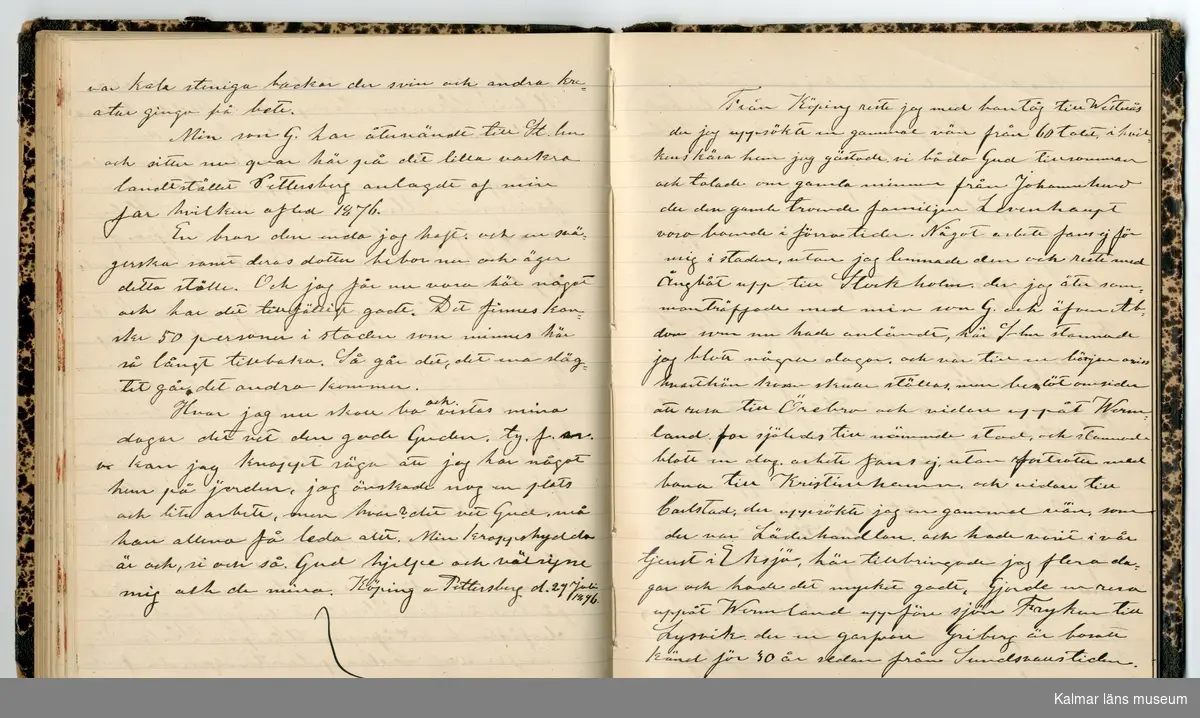 var kala steniga backar der svin och andra kre-
atur gingo på bete.
Min son G. har återvändt till St.hm
och sitter nu qvar här på det lilla vackra
landtstället Pettersberg anlagdt af min
far hvilken afled 1876.
En bror den enda jag haft. och en svä-
gerska samt deras dotter bebor nu och äger
detta ställe. Och jag får nu vara här något
och har det tillfälligt godt. Det finnes kan-
ske 50 personer i staden som minnes här
så långt tillbaka. Så går det, det ena släg-
tet går, det andra kommer.
Hvar jag nu skall bo och vistas mina
dagar det vet den gode Guden, ty. f. n.
kan jag knappt säga att jag har något
hem på jorden, jag önskade nog en plats
och lite arbete, men hvar? det vet Gud, må
han allena få leda allt. Min kroppshydda
är och, si och så. Gud hjelpe och välsigne
mig och de mina. Köping o Pettersberg d. 27 Juli
1896.
Från Köping reste jag med bantåg till Westerås
der jag uppsökte en gammal vän från 60 talet, i hvil-
kens kära hem jag gästade, vi bådo Gud tillsamman
och talade om gamla minnen från Johannelund
der den gamle troende familjen Levenhaupt
voro boende i förra tider. Något arbete fans ej för
mig i staden, utan jag lemnade den och reste med
Ångbåt upp till Stockholm. der jag åter sam-
manträffade med min son G. och äfven Ab-
don som nu hade anländt, här i St.hm stannade
jag blott några dagar, och var till en början oviss
hvarthän kosan skulle ställas, men beslöt omsider
att resa till Örebro och vidare uppåt Werm-
land. for således till nämnde stad, och stannade
blott en dag, arbete fans ej, utan fortsatte med
bana till Kristinehamn, och vidare till
Carlstad, der uppsökte jag en gammal vän, som
der var Läderhandlare och hade varit i vår
tjenst i Eksjö, här tillbringade jag flera da-
gar och hade det mycket godt, Gjorde en resa
uppåt Wermland uppföre sjön Fryken till
Lysvik der en garfvare Griberg är bosatt
känd för 30 år sedan från Sundsvallstiden.
Kalmar läns museum